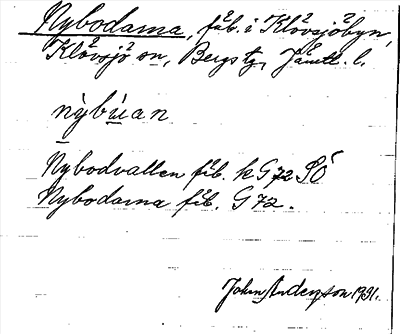 Nybodarna, fäb. i Klövsjöbyn,
Klövsjö sn, Bergs tg, Jämtl. l.
nỳbùan
Nybodvallen fäb. k G72 SÖ
Nybodarna fäb. G72.
John Anderson 1931.